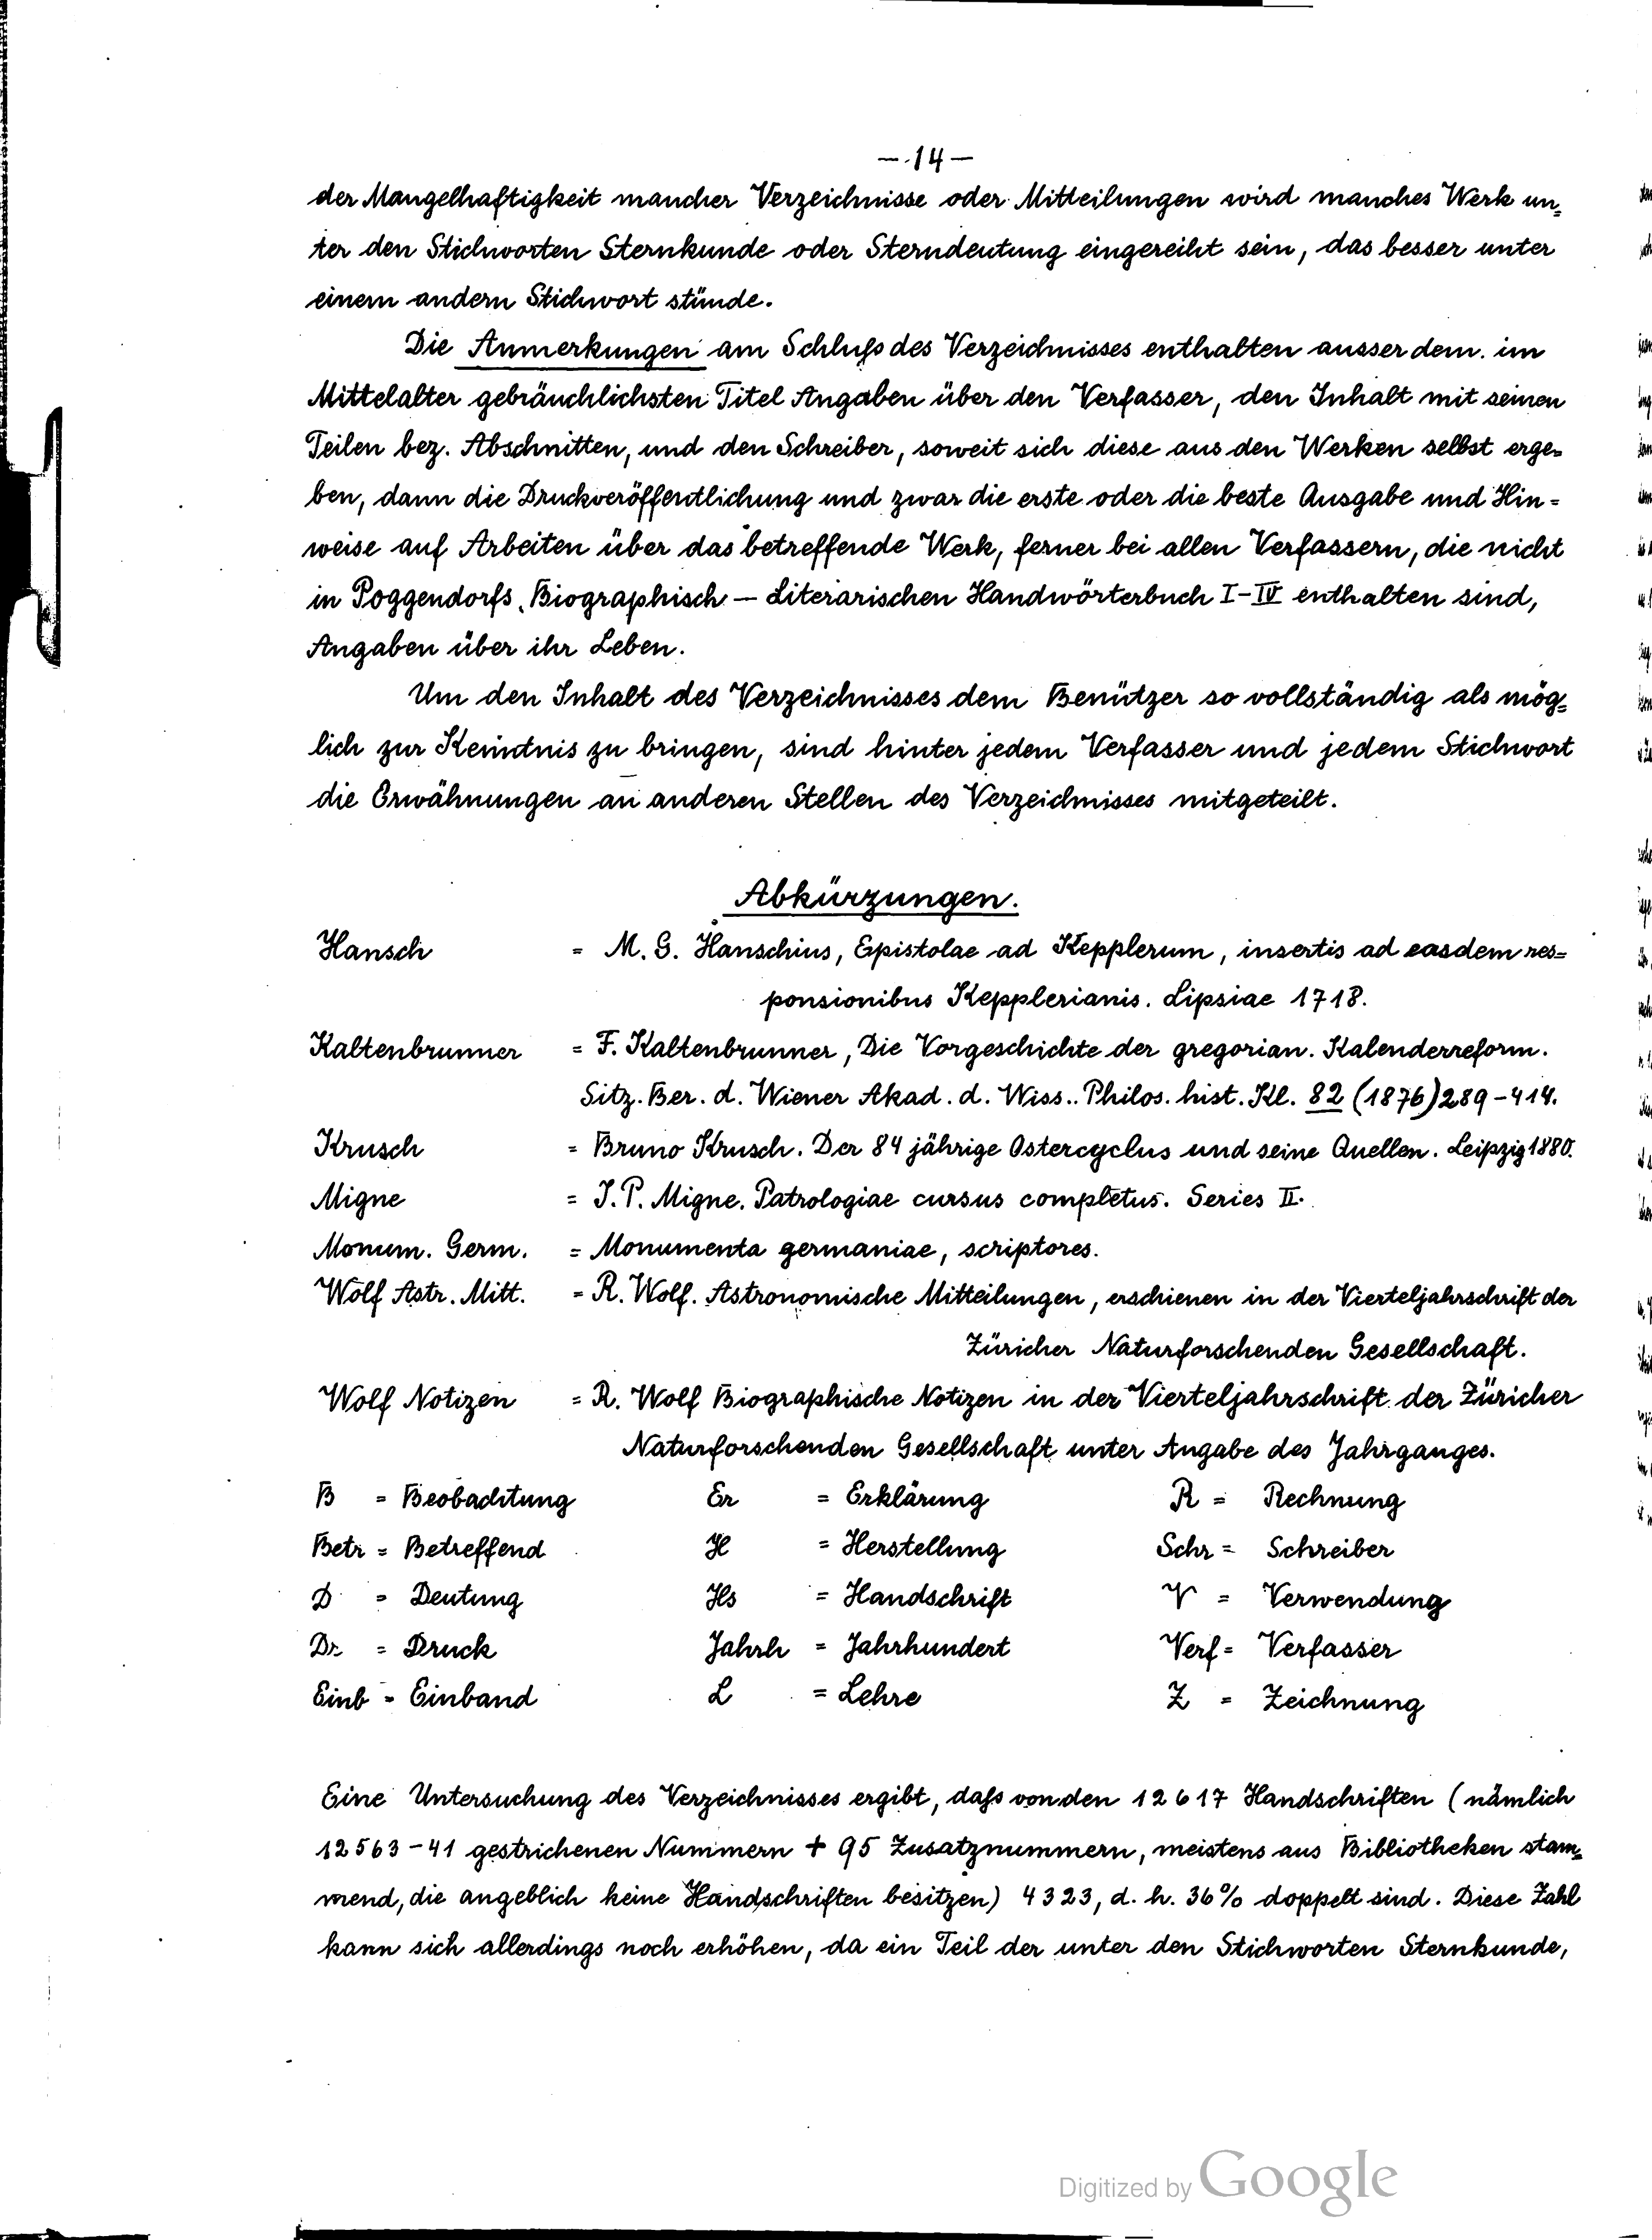 —14—
der Mangelhaftigkeit mancher Verzeichnisse oder Mitteilungen wird manches Werk un=
ter den Stichworten Sternkunde oder Sterndeutung eingereiht sein, das besser unter
einem andern Stichwort stünde.
Die Anmerkungen am Schluß des Verzeichnisses enthalten ausser dem im
Mittelalter gebräuchlichsten Titel Angaben über den Verfasser, den Inhalt mit seinen
Teilen bez. Abschnitten, und den Schreiber, soweit sich diese aus den Werken selbst erge=
ben, dann die Druckveröffentlichung und zwar die erste oder die beste Ausgabe und Hin=
weise auf Arbeiten über das betreffende Werk, ferner bei allen Verfassern, die nicht
in Poggendorfs, Biographisch — Literarischen Handwörterbuch I-IV enthalten sind,
Angaben über ihr Leben.
Um den Inhalt des Verzeichnisses dem Benützer so vollständig als mög=
lich zur Kenntnis zu bringen, sind hinter jedem Verfasser und jedem Stichwort
die Erwähnungen an anderen Stellen des Verzeichnisses mitgeteilt.
Abkürzungen.
Hansch = M. G. Hanschius, Epistolae ad Kepplerum, insertis ad easdem res=
ponsionibus Kepplerianis. Lipsiae 1718.
Kaltenbrunner = F. Kaltenbrunner, Die Vorgeschichte der gregorian. Kalenderreform.
Sitz. Ber. d. Wiener Akad. d. Wiss.. Philos. hist. Kl. 82 (1876) 289-414.
Krusch = Bruno Krusch. Der 84 jährige Ostercyclus und seine Quellen. Leipzig 1880.
Migne = J. P. Migne. Patrologiae cursus completus. Series II.
Monum. Germ. = Monumenta germaniae, scriptores.
Wolf Astr. Mitt. = R. Wolf. Astronomische Mitteilungen, erschienen in der Vierteljahrschrift der
Züricher Naturforschenden Gesellschaft.
Wolf Notizen = R. Wolf Biographische Notizen in der Vierteljahrschrift der Züricher
Naturforschenden Gesellschaft unter Angabe des Jahrganges.
B = Beobachtung Er = Erklärung R = Rechnung
Betr = Betreffend H = Herstellung Schr = Schreiber
D = Deutung Hs = Handschrift V = Verwendung
Dr = Druck Jahrh = Jahrhundert Verf = Verfasser
Einb = Einband L = Lehre Z = Zeichnung
Eine Untersuchung des Verzeichnisses ergibt, daß von den 12617 Handschriften (nämlich
12563-41 gestrichenen Nummern + 95 Zusatznummern, meistens aus Bibliotheken stam=
mend, die angeblich keine Handschriften besitzen) 4323, d. h. 36% doppelt sind. Diese Zahl
kann sich allerdings noch erhöhen, da ein Teil der unter den Stichworten Sternkunde,
Digitized by Google